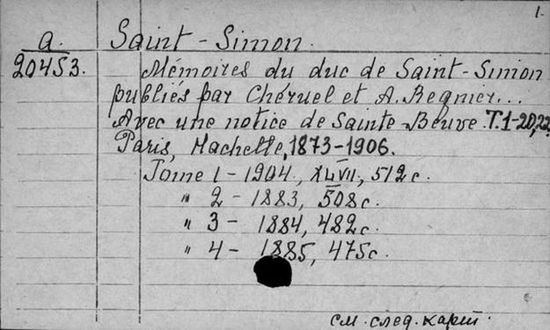 1.
a. Saint-Simon.
20453. Mémoires du duc de Saint-Simon
publiés par Chéruel et A. Regnier...
Avec une notice de Sainte-Beuve. T. 1-20, 22.
Paris, Hachette, 1873-1906.
Tome 1 - 1904, XLVII, 512 c.
" 2 - 1883, 508 c.
" 3 - 1884, 482 c.
" 4 - 1885, 475 c.
см. след. карт.